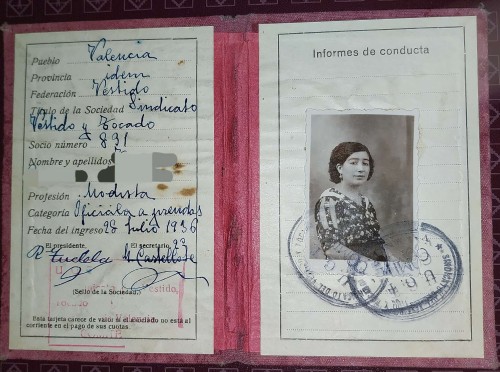 Pueblo Valencia
Provincia idem
Federación Vestido
Título de la Sociedad Sindicato
Vestido y Tocado
Socio número 831
Nombre y apellidos
Profesión Modista
Categoría Oficiala a prendas
Fecha del ingreso 28 Julio 1936
El presidente, El secretario,
R. Tudela
(Sello de la Sociedad)
Esta tarjeta carece de valor si el asociado no está al
corriente en el pago de sus cuotas.
Informes de conducta
U G T